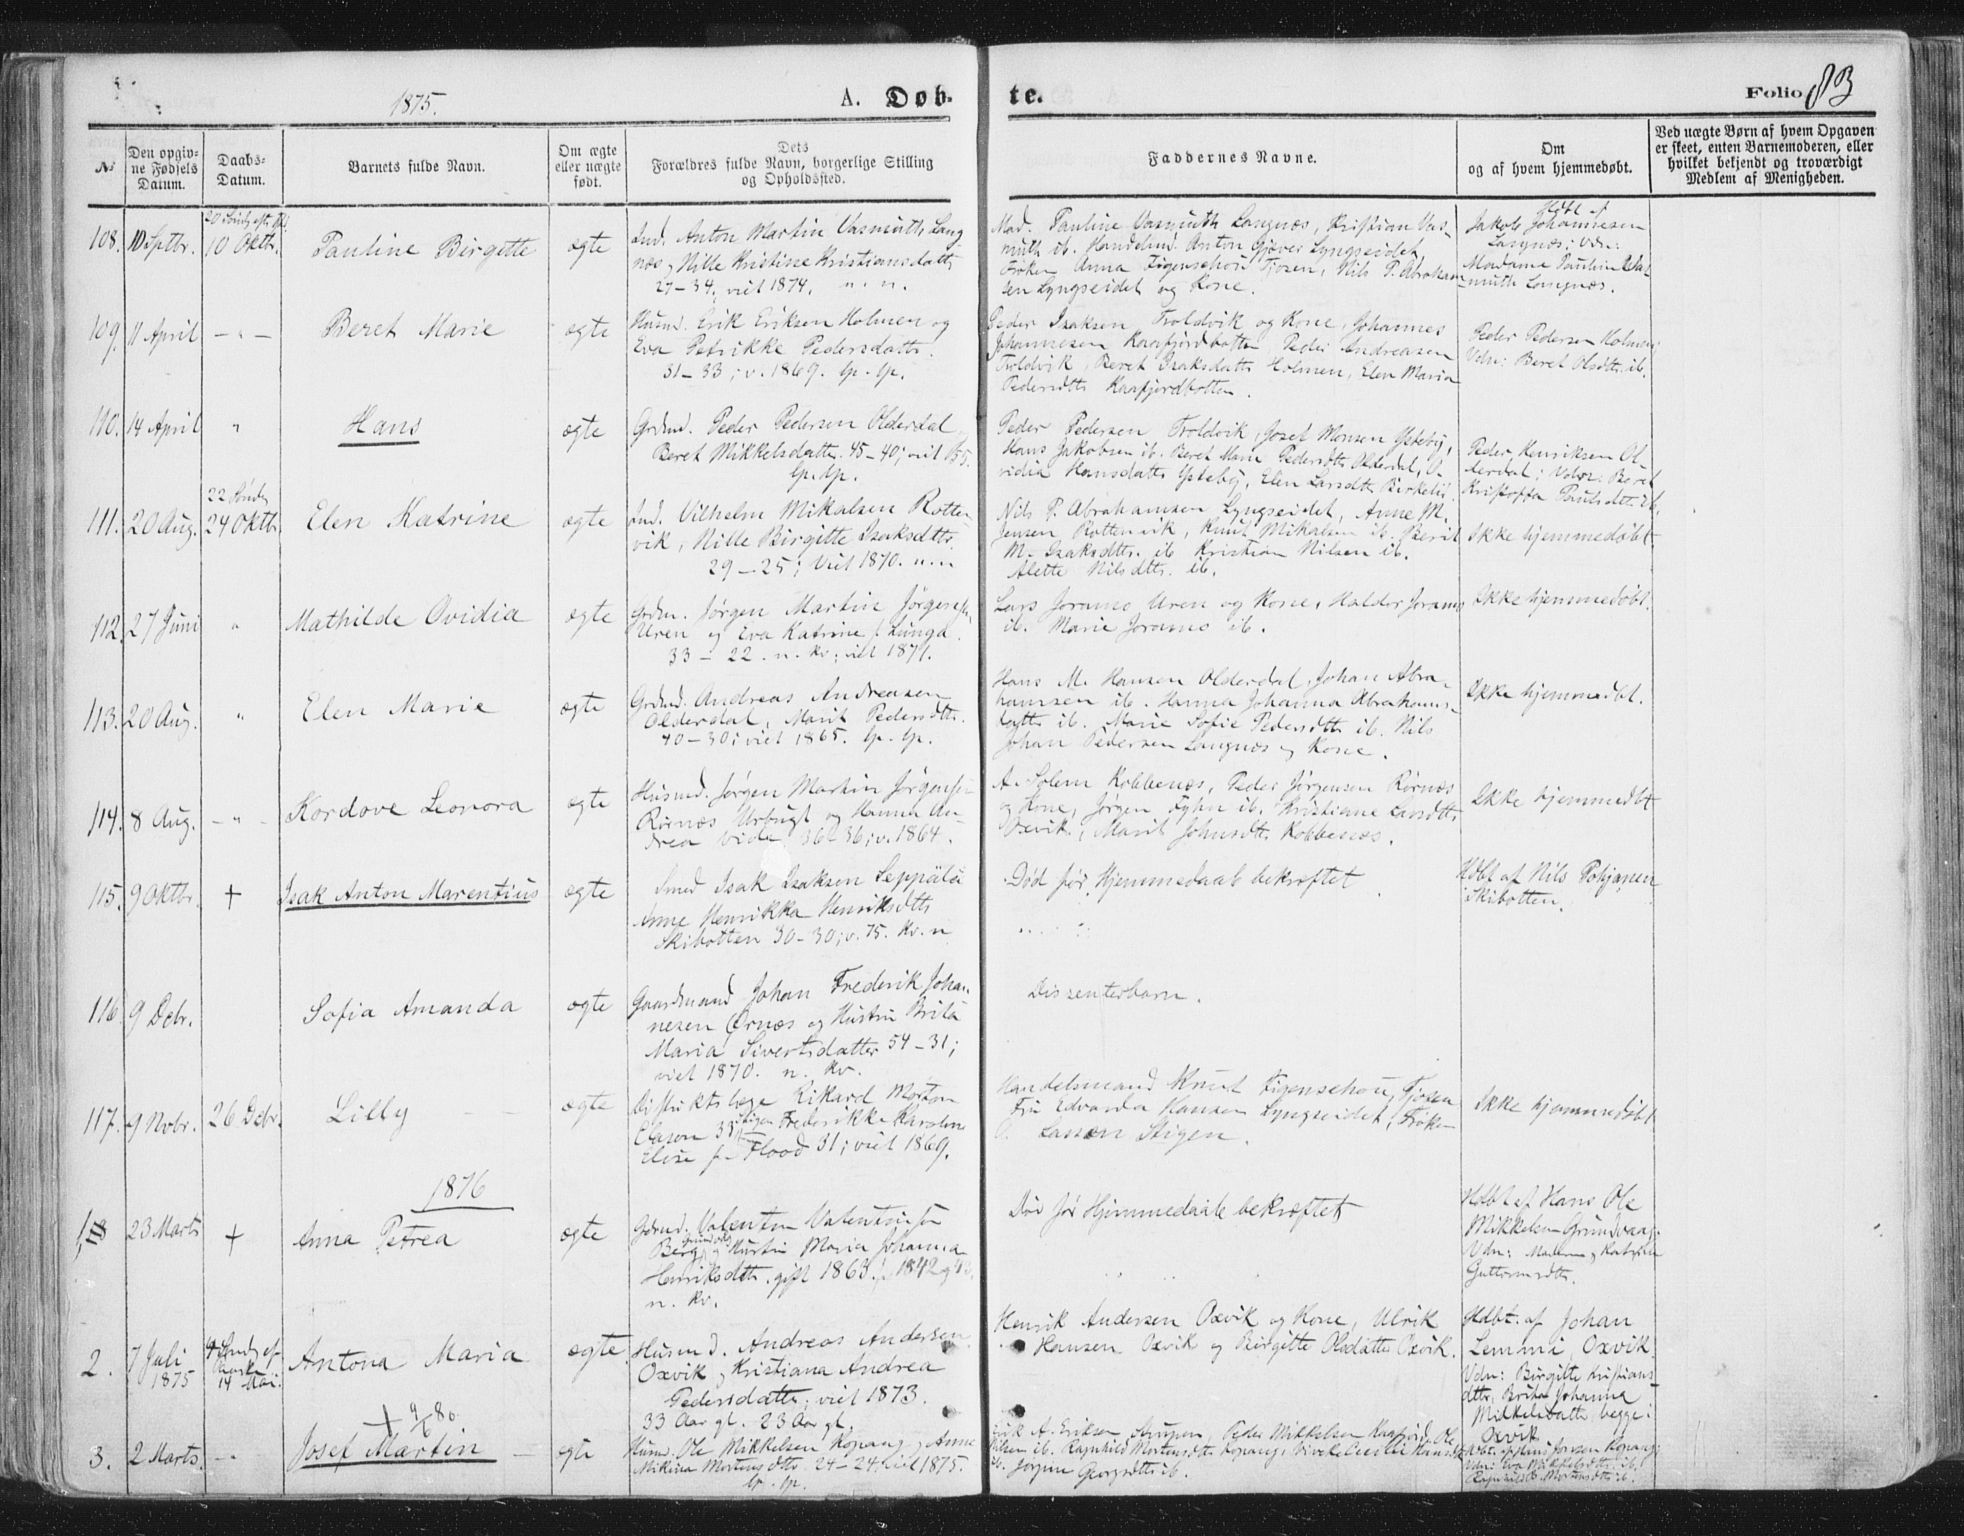 1875.
A. Døb-
te.
Folio 83
№
Den opgiv-
ne Fødsels
Datum.
Daabs-
Datum.
Barnets fulde Navn.
Om ægte
eller uægte
født.
Dets
Forældres fulde Navn, borgerlige Stilling
og Opholdssted.
Faddernes Navne.
Om
og af hvem hjemmedøbt.
Ved uægte Børn af hvem Opgaven
er skeet, enten Barnemoderen, eller
hvilket bekjendt og troværdigt
Medlem af Menigheden.
108. 10 Sptbr.
10 Oktbr.
Pauline Birgette
ægte
Ind. Anton Martin Vasmuth Lang
næs, Nille Kristine Kristiansdatt.
27-34, viet 1874. n. n.
Mad. Pauline Vasmuth Langnæs, Kristian Vas-
muth ib. Handelsmd. Anton Gjæver Lyngseidet
Frøken Anna Figenschou Fjosen, Nils P. Abraham
sen Lyngseidet og Kone.
Jakob Johannesen
Langnæs; Vdn:
Madame Pauline Vas-
muth Langnæs.
109. 11 April
-"-
Beret Marie
ægte
Husmd. Erik Eriksen Holmen og
Eva Petrikke Pedersdattr.
31-33; v. 1869. lp. lp.
Peder Isaksen Troldvik og Kone, Johannes
Johannesen Kaafjordbotten Peder Andreasen
Troldvik, Beret Isaksdattr Holmen, Elen Maria
Pedersdttr Kaafjordbotten.
Peder Pedersen Holmen;
Vdn: Beret Olsdttr. ib.
110. 14 April
"
Hans
ægte
Grdmd. Peder Pedersen Olderdal
Beret Mikkelsdattr. 45-40; viet 1855.
lp. lp.
Peder Pedersen Troldvik, Josef Monsen Ysteby,
Hans Jakobsen ib. Beret Marie Pedersdttr Olderdal, O-
vidia Hansdattr Ysteby, Elen Larsdttr Birkeli.
Peder Henriksen Ol-
derdal; Vdn: Beret
Kristoffa Paulsdttr. ib.
22 Sönd.
111. 20 Aug.
24 Oktb.
Elen Katrine
ægte
Ind. Vilhelm Mikalsen Rotten-
vik, Nille Birgitte Isaksdttr.
29-25; Viet 1870. n. n.
Nils P. Abrahamsen Lyngseidet, Anne M.
Jensen Rottenvik, Knut Mikalsen ib. Berit
M. Isaksdttr. ib Kristian Nilsen ib.
Alette Nilsdttr. ib.
Ikke hjemmedøbt.
112. 27 Juni
"
Mathilde Ovidia
ægte
Grdm. Jørgen Martin Jörgensen
Uren og Eva Katrine f. Lunga.
33-22. n. kv; viet 1871.
Lars Joramo Uren og Kone, Haldor Joramo
ib. Marie Joramo ib.
Ikke hjemmedøbt.
113. 20 Aug.
"
Elen Marie
ægte
Grdmd. Andreas Andreasen
Olderdal, Marit Pedersdttr.
40-30; viet 1865. lp. lp.
Hans M. Hansen Olderdal, Johan Abra-
hamsen ib. Hanna Johanna Abrahams-
dattr ib. Marie Sofie Pedersdttr ib. Nils
Johan Pedersen Langnæs og Kone.
Ikke hjemmedbt.
114. 8 Aug.
-"-
Kordove Leonora
ægte
Husmd. Jørgen Martin Jörgensen
Rörnæs Urbugt og Hanna An-
drea 36-36; v. 1864.
A. Solem Kobbenæs, Peder Jörgensen Rörnæs
og Kone, Jörgen Fyhn ib. Kristiane Larsdttr
Oxvik, Marit Johnsdttr. Kobbenæs.
Ikke hjemmedbt
115. 9 Oktbr.
+
Isak Anton Marentius
ægte
Smed Isak Isaksen Seppälä
Anne Henrikka Henriksdttr
Skibotten 30-30; v. 75. kv. n
Död før Hjemmedaab bekræftet
Hdbt af Nils Pohjanen
Skibotten.
116 9 Dcbr.
Sofia Amanda
ægte
Gaardmand Johan Frederik Johan-
nesen Ornæs og Hustru Brita
Maria Sivertsdatter 54-31;
viet 1870. n. kv.
Dissenterbarn.
117. 9 Nvbr.
26 Dcbr.
Lilly
ægte
Distriktslæge Rikard Morton
Clason 33, Frederikke Karoline
Elise f. Flood 31; viet 1869.
Handelsmand Knut Figenschou, Fjosen
Fru Edvarda Hansen Lyngseidet, Frøken
Lassen Stigen.
Ikke hjemmedøbt
1876
1. 23 Marts
+
Anna Petrea
ægte
Grdmd. Valentin Valentinsen
Berg, Hustru Maria Johanna
Henriksdttr. gift 1863.
n. kv.
Död før Hjemmedaab bekræftet
Hdbt af Hans Ole
Mikkelsen Grundvaag;
Vdn: og Katrine
Guttormsdttr.
2. 7 Juli
1875
14 Mai.
Antona Maria
ægte
Husmd. Andreas Andersen
Oxvik, Kristiana Andrea
Pedersdattr, viet 1873.
33 Aar gl. 23 Aar gl.
Henrik Andersen Oxvik og Kone, Ulrik
Hansen Oxvik og Birgitte Olsdatter Oxvik.
Hdbt. af Johan
Lemmi, Oxvik
Vdn: Birgitte Kristians-
dttr, Brita Johanna
Mikkelsdattr, begge
Oxvik
3. 2 Marts.
-"-
Josef Martin
ægte
Husmd. Ole Mikkelsen Kopang, Anne
Nikina Mortensdttr. 24-24, viet 1875.
lp. lp.
Erik A. Eriksen, Peder Mikkelsen Kaafjord, Ole
Nilsen ib. Ragnhild Mortensdttr. Kopang,
ib. Jörgine Georgsdttr ib.
Hdbt. af Hans Jensen Kopang;
Vdn: Eva Mikkelsdttr. ib.
Ragnhild Mortensdttr ib.